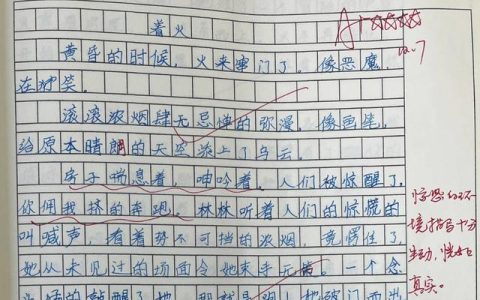 着火
A+
12.7
黄昏的时候，火来串门了。像恶魔，
在狞笑。
滚滚浓烟肆无忌惮的弥漫。像画笔，
给原本晴朗的天空染上了乌云。
房子喘息着，呻吟着。人们被惊醒了，
你拥我挤的奔跑。林林听着人们的惊慌的
叫喊声，看着势不可挡的浓烟，竟愣住了，
她从未见过的场面令她束手无措。一个念
惊恐的环
境描写十分
生动，恍如
真实。